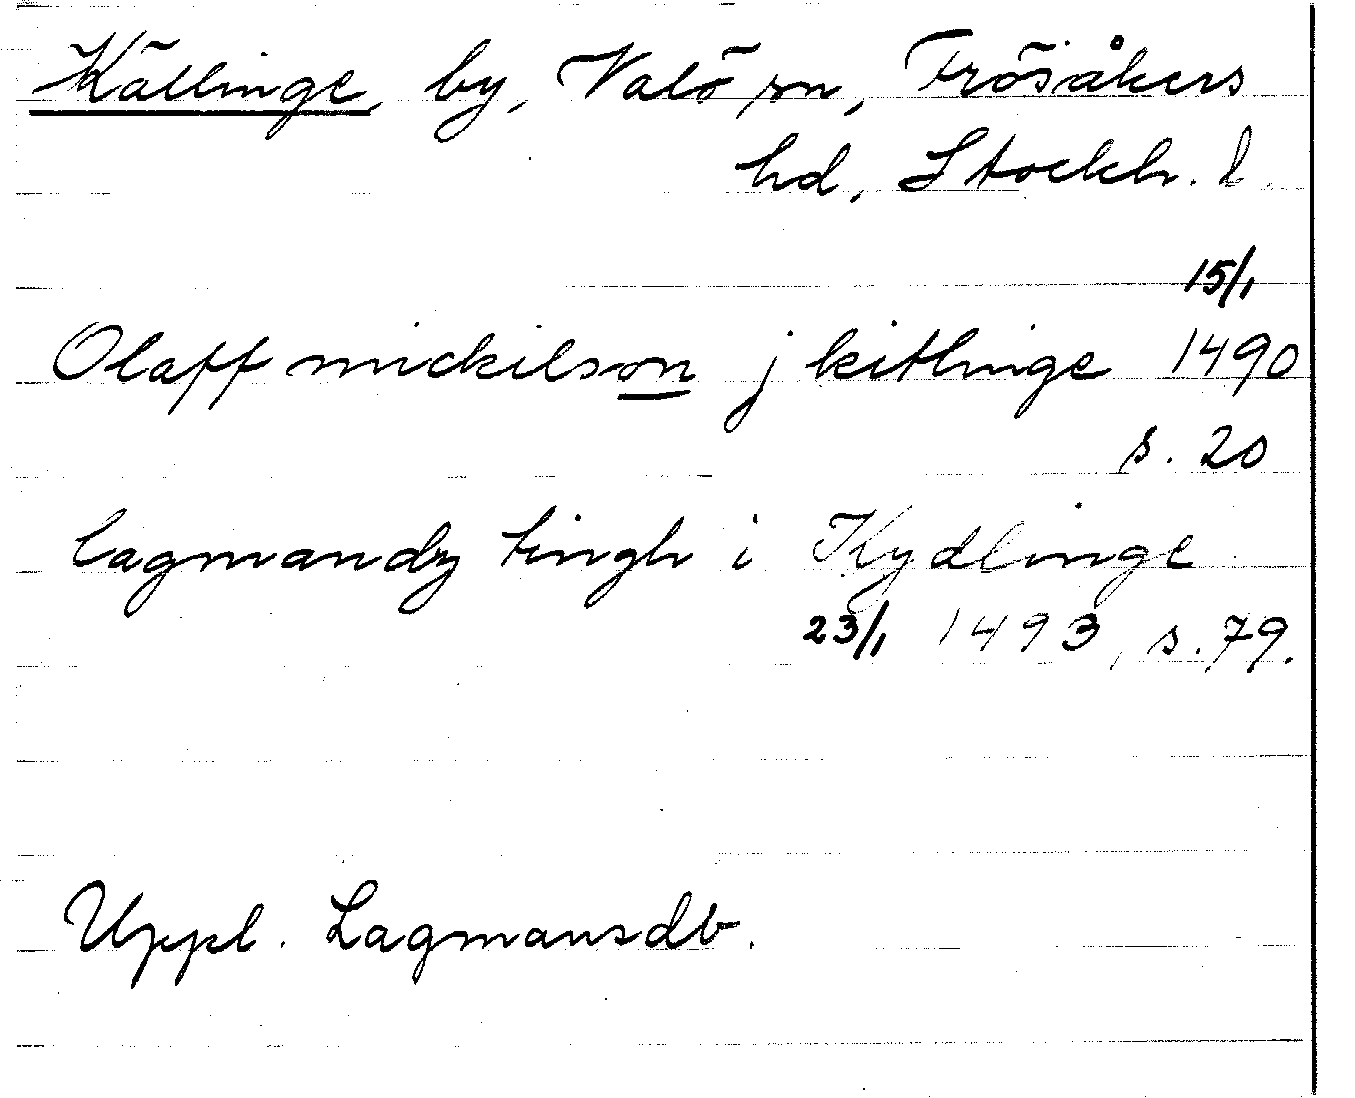 Källinge, by, Valö sn, Frösåkers
hd, Stockh. l.
15/1
Olaff mickilson j kitlinge 1490
s. 20
lagmandz tingh i Kydlinge
23/1 1493, s. 79.
Uppl. Lagmansdb.